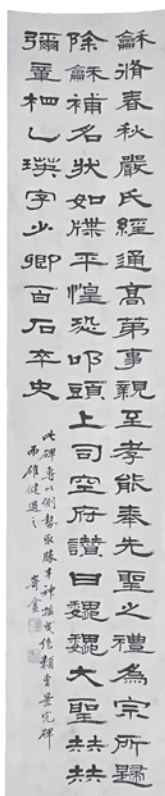 龢脩春秋嚴氏經通高第事親至孝能奉先聖之禮為宗所歸
除龢補名狀如牒平惶恐叩頭上司空府讚曰巍巍大聖赫赫
彌章相乙瑛字少卿百石卒史
此碑專以側勢取勝丰神搖曳絕類曹景完碑
而雄健過之
寄盦